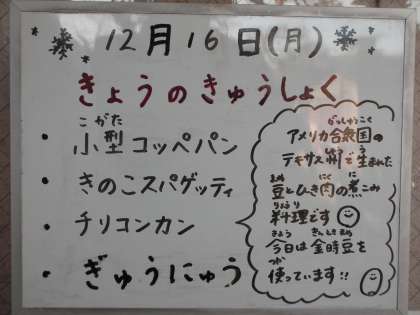 12月16日(月)
きょうのきゅうしょく
・小型コッペパン
・きのこスパゲッティ
・チリコンカン
・ぎゅうにゅう
アメリカ合衆国の
テキサス州で生まれた
豆とひき肉の煮こみ
料理です
今日は金時豆を
使っています!!